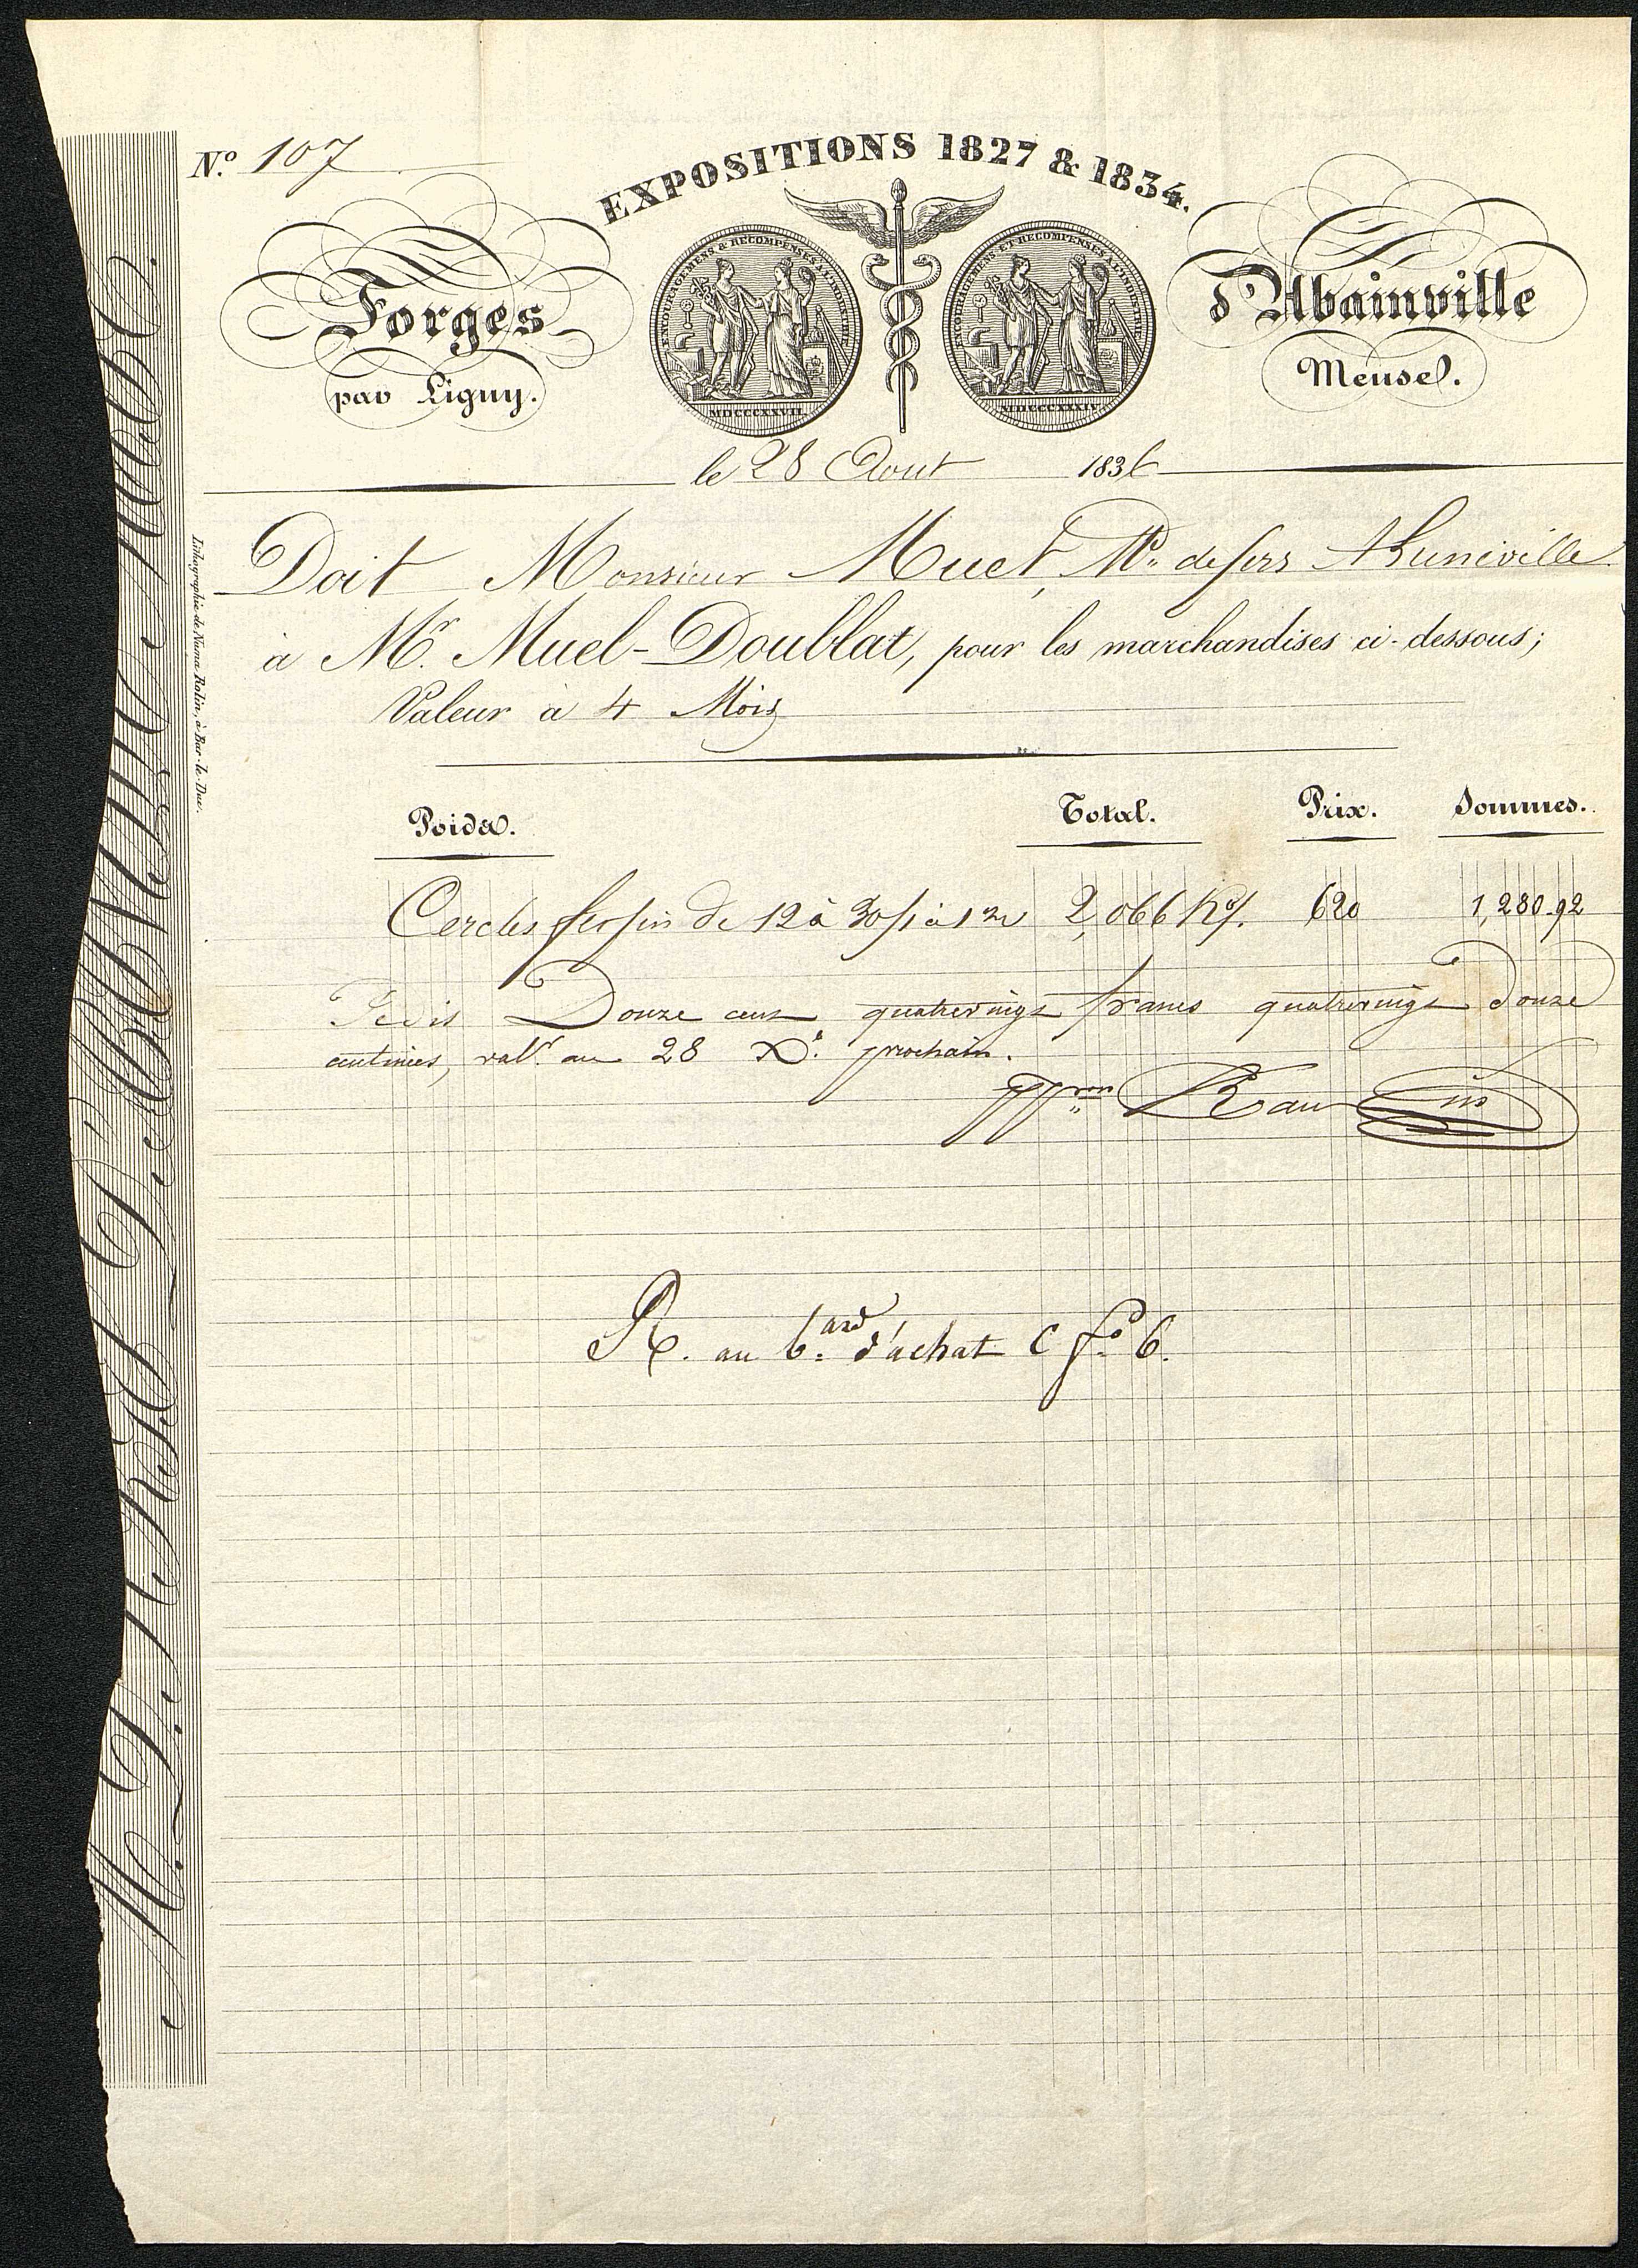 N.º 107
EXPOSITIONS 1827 & 1834.
ENCOURAGEMENS & RECOMPENSES A L'INDUSTRIE
MDCCCXXVII
ENCOURAGEMENS ET RECOMPENSES A L'INDUSTRIE
MDCCCXXXIV
Forges d'Abainville
par Ligny. Meuse.
le 28 Aout 1836
Doit Monsieur Muet, Md. de fers A Luneville
à Mr. Muel-Doublat, pour les marchandises ci-dessous;
Valeur à 4 Mois
Poids. Total. Prix. Sommes.
Cercles fer fin de 12 à 30/1 à 1 2,066 K 620 1,280.92
Je dis Douze cent quatrevingt francs quatrevingt Douze
centimes, valr. au 28 Xe. prochain.
Ppon Rau
R. au bard d'achat C fo. 6.
Lithographie de Numa Rolin, à Bar-le-Duc.